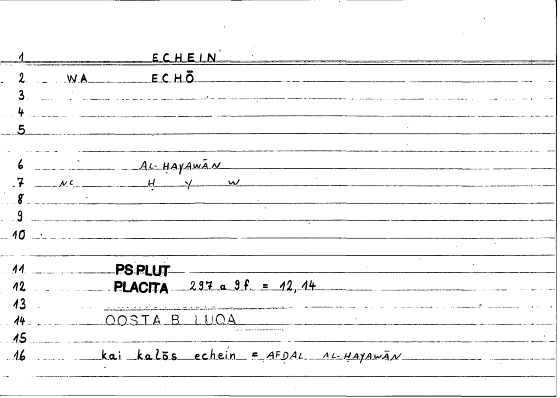 1 ECHEIN
2 WA ECHŌ
3
4
5
6 AL-ḤAYAWĀN
7 NC Ḥ Y W
8
9
10
11 PS.PLUT
12 PLACITA 297 a 9f. = 12,14
13
14 QOSTA B. LUQA
15
16 kai kalōs echein = AFḌAL AL-ḤAYAWĀN